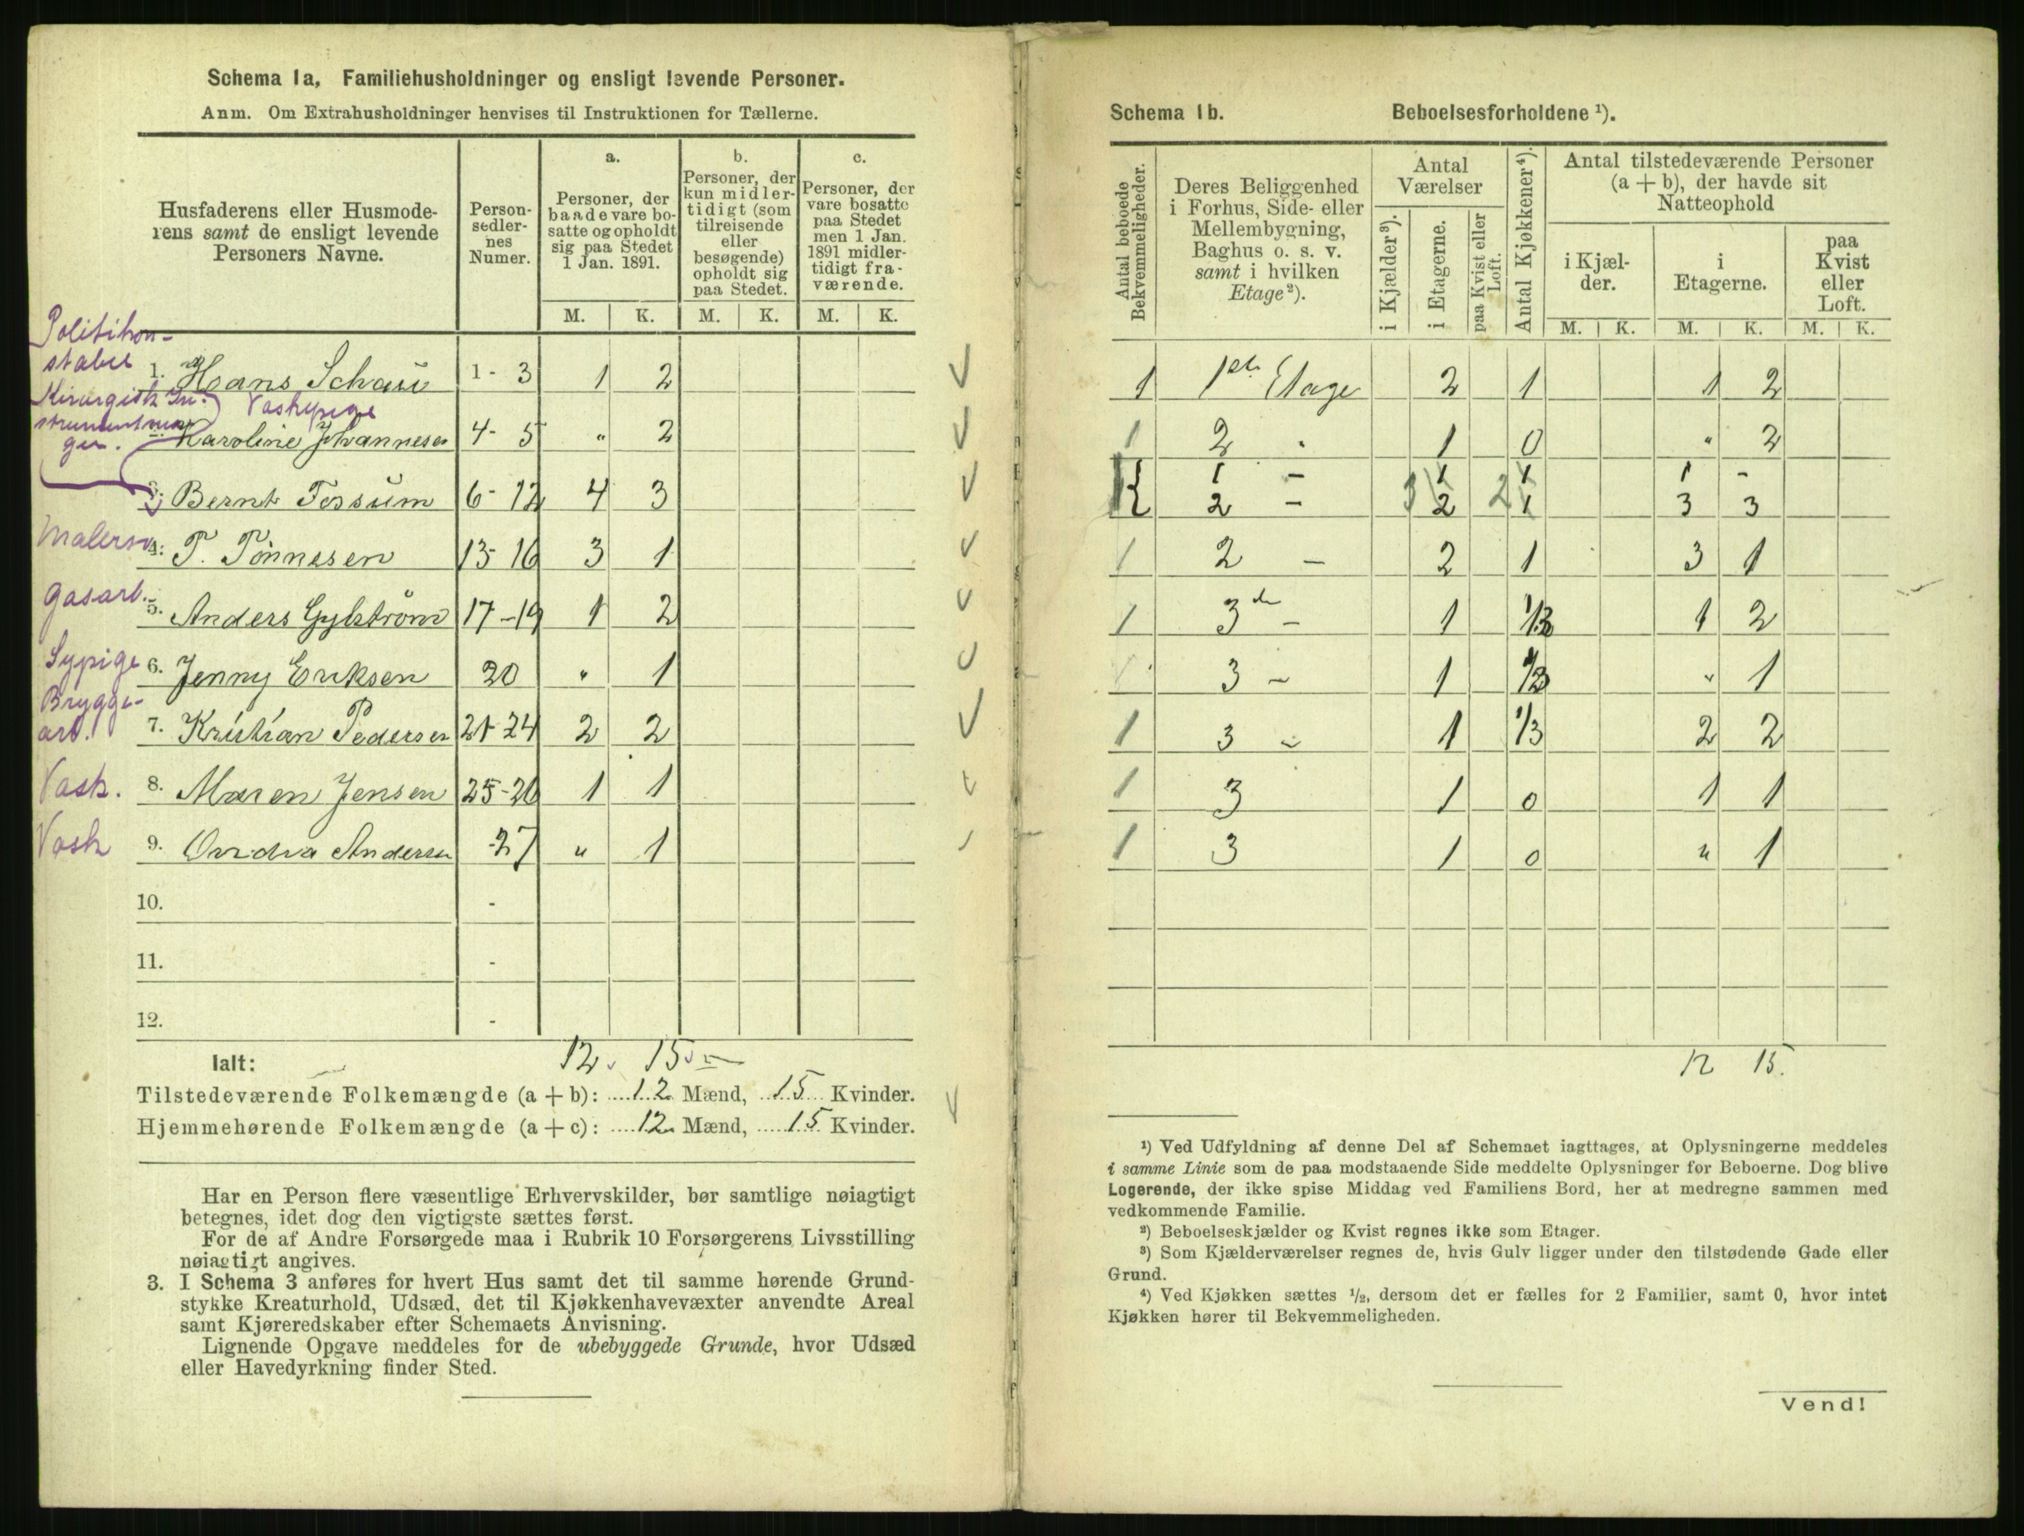 Schema 1a, Familiehusholdninger og ensligt levende Personer.
Anm. Om Extrahusholdninger henvises til Instruktionen for Tællerne.
Husfaderens eller Husmode-
rens samt de ensligt levende
Personers Navne.
Person-
sedler-
nes
Numer.
a.
Personer, der
baade vare bo-
satte og opholdt
sig paa Stedet
1 Jan. 1891.
b.
Personer, der
kun midler-
tidigt (som
tilreisende
eller
besøgende)
opholdt sig
paa Stedet.
c.
Personer, der
vare bosatte
paa Stedet
men 1 Jan.
1891 midler-
tidigt fra-
værende.
M. K. M. K. M. K.
Politikon-
stabel
1. Hans Schau 1 - 3 1 2
Kirurgisk In-
strumentma-
ger.
Vaskepige
Karoline Johannesen 4 - 5 " 2
3. Bernt Fossum 6 - 12 4 3
Malersv. 4. T. Tønnesen 13 - 16 3 1
Gasarb. 5. Anders Gylstrøm 17 - 19 1 2
Sypige 6. Jenny Eriksen 20 " 1
Brygge-
arb. 7. Kristian Pedersen 21 - 24 2 2
Vask. 8. Maren Jensen 25 - 26 1 1
Vask 9. Ovidia Andersen - 27 " 1
10. -
11. -
12. -
Ialt: 12 15
Tilstedeværende Folkemængde (a + b): 12 Mænd, 15 Kvinder.
Hjemmehørende Folkemængde (a + c): 12 Mænd, 15 Kvinder.
Har en Person flere væsentlige Erhvervskilder, bør samtlige nøiagtigt
betegnes, idet dog den vigtigste sættes først.
For de af Andre Forsørgede maa i Rubrik 10 Forsørgerens Livsstilling
nøiagtigt angives.
3. I Schema 3 anføres for hvert Hus samt det til samme hørende Grund-
stykke Kreaturhold, Udsæd, det til Kjøkkenhavevæxter anvendte Areal
samt Kjøreredskaber efter Schemaets Anvisning.
Lignende Opgave meddeles for de ubebyggede Grunde, hvor Udsæd
eller Havedyrkning finder Sted.
Schema 1b. Beboelsesforholdene ¹).
Antal beboede
Bekvemmeligheder.
Deres Beliggenhed
i Forhus, Side- eller
Mellembygning,
Baghus o. s. v.
samt i hvilken
Etage²).
Antal
Værelser
i Kjælder³).
i Etagerne.
paa Kvist eller
Loft.
Antal Kjøkkener⁴).
Antal tilstedeværende Personer
(a + b), der havde sit
Natteophold
i Kjæl-
der.
i
Etagerne.
paa
Kvist
eller
Loft.
M. K. M. K. M. K.
1 1ste Etage 2 1 1 2
1 2 " 1 0 " 2
1 - 1 1 1 -
2 - 2 1 3 3
1 2 - 2 1 3 1
1 3de - 1 1/3 1 2
1 3 - 1 1/3 " 1
1 3 - 1 1/3 2 2
1 3 1 0 1 1
1 3 1 0 " 1
12 15.
¹) Ved Udfyldning af denne Del af Schemaet iagttages, at Oplysningerne meddeles
i samme Linie som de paa modstaaende Side meddelte Oplysninger for Beboerne. Dog blive
Logerende, der ikke spise Middag ved Familiens Bord, her at medregne sammen med
vedkommende Familie.
²) Beboelseskjælder og Kvist regnes ikke som Etager.
³) Som Kjælderværelser regnes de, hvis Gulv ligger under den tilstødende Gade eller
Grund.
⁴) Ved Kjøkken sættes ½, dersom det er fælles for 2 Familier, samt 0, hvor intet
Kjøkken hører til Bekvemmeligheden.
Vend!